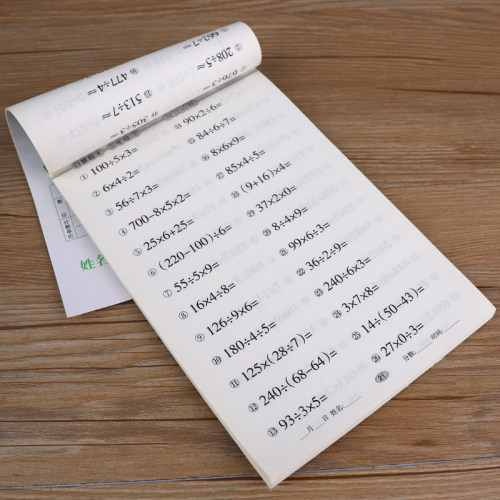 208÷5≈
477÷4≈
513÷7≈
① 100÷5×3=
② 6×4÷2=
③ 56÷7×3=
④ 700-8×5×2=
⑤ 25×6+25=
⑥ (220-100)÷6=
⑦ 55÷5×9=
⑧ 16×4÷8=
⑨ 126÷9×6=
⑩ 180÷4÷5=
⑪ 125×(28÷7)=
⑫ 240÷(68-64)=
⑬ 93÷3×5=
⑭ 90×2÷6=
⑮ 84÷6÷7=
⑯ 8×6×9=
⑰ 85×4÷5=
⑱ (9+16)×4=
⑲ 37×2×0=
⑳ 8÷4×9=
㉑ 99×6÷3=
㉒ 36÷2÷9=
㉓ 240÷6×3=
㉔ 3×7×8=
㉕ 14÷(50-43)=
㉖ 27×0÷3=
月 日 姓名
分数: 时间:
21
姓名